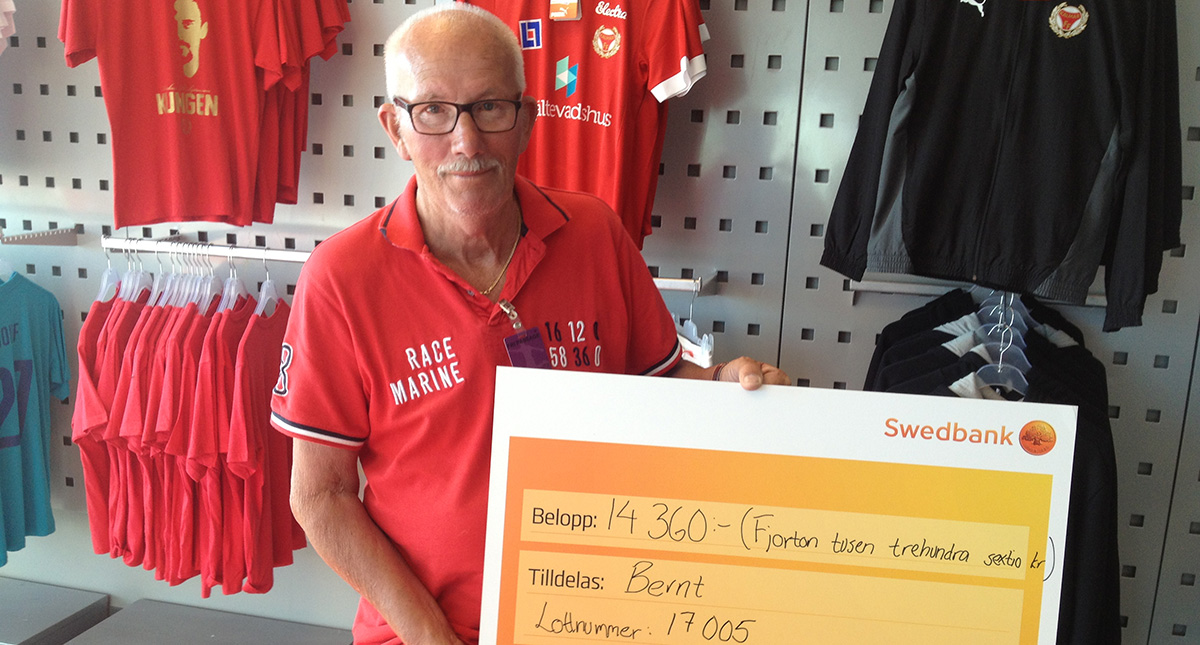 KUNGEN
Electra
ältevadshus
RACE
MARINE
16 12
58 36 0
Swedbank
Belopp: 14 360:- (Fjorton tusen trehundra sextio kr)
Tilldelas: Bernt
Lottnummer: 17 005